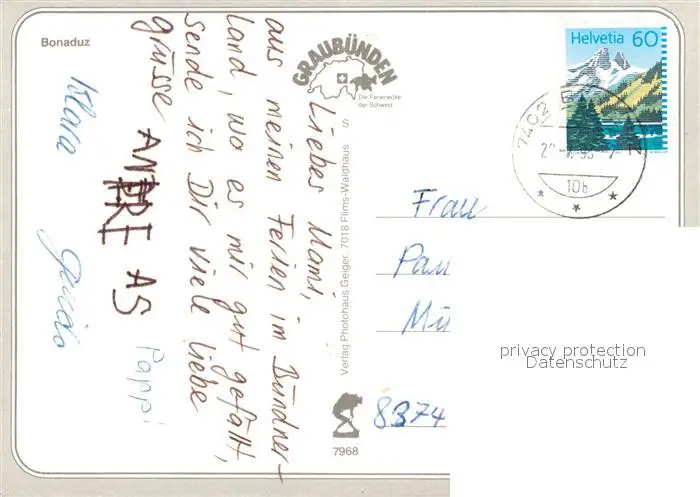 Bonaduz
GRAUBÜNDEN
Die Ferienecke
der Schweiz
Helvetia 60
7402
10b
S
Liebes Mami,
aus meinen Ferien im Bündner-
land, wo es mir gut gefällt,
sende ich Dir viele liebe
grüsse
ANDRE AS
Pappi
Klara
Verlag Photohaus Geiger, 7018 Flims-Waldhaus
7968
Frau
8374
privacy protection
Datenschutz